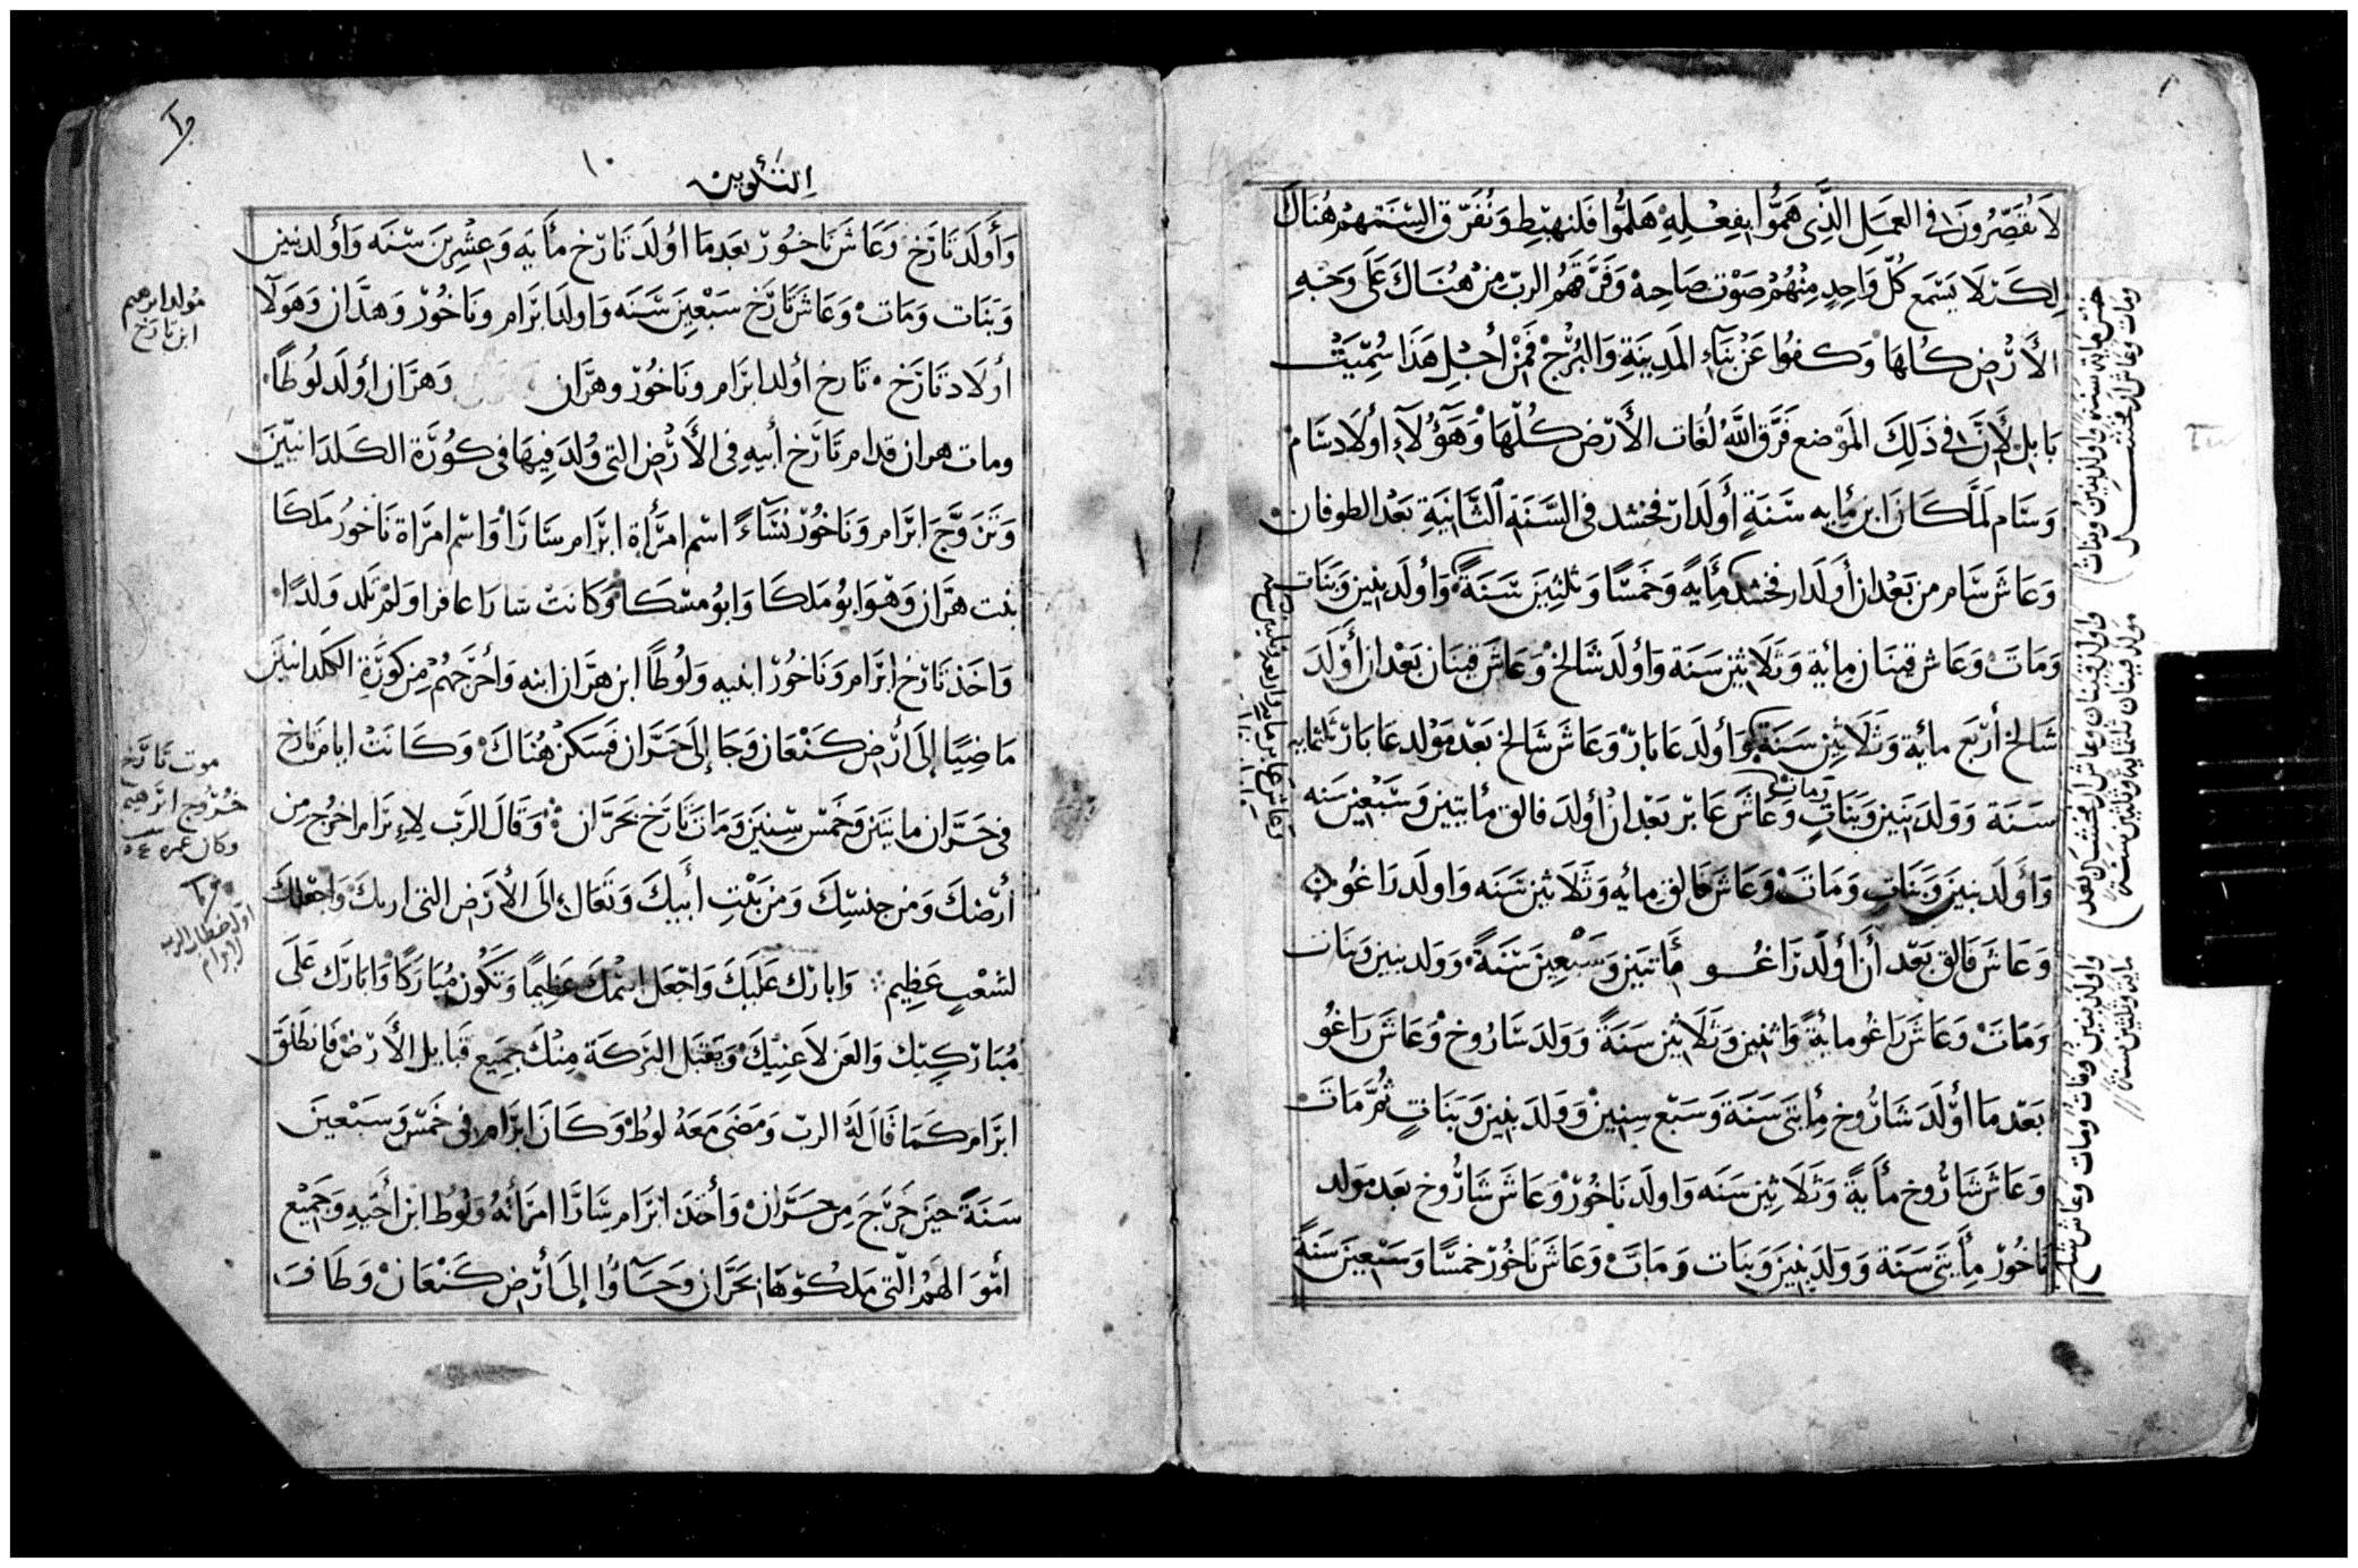 لَا تُقَصِّرُونَ في العمَلِ الذَّى هَمُّوا بِفِعْلِهِ هَلُمُّوا فَلنهبِطِ وَنُفَرّق السِنَتهمْ هُنَاكَ
لِكَىْ لَا يَسْمَع كُلّ وَاحِدٍ مِنْهُمْ صَوْت صَاحِبهْ وَفَرَّقَهُمُ الربّ مِنْ هُنَاكَ عَلَى وَجْهِ
الأَرْض كلهَا وَكفوا عَنْ بَنَآءِ المَدِينَةِ وَالبُرْجْ فَمِنْ أجْلِ هَذَا سُمِّيَتْ
بَابِلْ لِأَنّ في ذَلِكَ المَوْضع فَرَّق اللَّهُ لُغَات الأَرْض كُلّهَا وَهَؤُلَآءِ أولَاد سَام
وَسَام لَمَّا كَانَ ابن مأيه سَنَةٍ أَولَد ارفخشد فى السَّنَةِ الثَّانِيَةِ بَعْد الطوفان
وَعَاشَ سَام من بَعْد ان أولَد ارفخشد مِأَيَةً وَخَمْسًا وَثلثِينَ سَنَةً وَأولَد بنين وَبَنَات
وَمَاتَ وَعَاش قينَان مِائية وَثَلَاثِين سَنَة وَاولَد شَالخْ وَعَاشَ قينَان بَعْد ان أَولَدَ
شَالخ أرْبَع مائية وَثَلَاثِين سَنَة وَأولَد عَابَارْ وَعَاشَ شَالخ بَعْد مَوْلد عَابَارْ ثلثمايه
سَنَة وَوَلَد بَنِين وَبَنَاتٍ وَمات وَعَاشَ عَابْر بَعْد انْ أولَد فالق مأيتين وَسَبْعِين سَنه
وَأَولَد بنِينَ وَبَنَاتٍ وَمَاتَ وَعَاشَ فَالق مِايه وَثَلَاثِين سَنَه وَاولَد رَاغُو
وَعَاشَ فَالق بَعْد أَنْ أولَد رَاغُو مأَتيَن وَسَبْعِين سَنَةً وَوَلد بنين وَبنَات
وَمَاتَ وَعَاشَ رَاغُو مايةً وَاثنين وَثَلَاثِين سَنَةً وَوَلدَ شَارُوخ وَعَاشَ رَاغُو
بَعْد مَا اوْلَدَ شَارُوخ مِأيتَى سَنَة وَسَبْع سِنِينْ وَوَلَدَ بنِين وَبَنَاتٍ ثُمَّ مَاتَ
وَعَاشَ شَارُوخ مأَيةً وَثَلَاثِين سَنَه وَاولَد نَاخُورْ وَعَاشَ شَارُوخ بَعْد مَولد
نَاخُورْ مِأيتَى سَنَة وَوَلَد بَنِينَ وَبنَات وَمَاتَ وَعَاشَ نَاخُورْ خمْسًا وَسَبْعِينَ سَنةً
خمس مائة سنه واولد بنين وبنات
ومات وعاش ارفخشد
واولد قينان وعاش ارفخشد بعد
مولد قينان ثلثماية وثلثين سنة
واولد بنين وبنات ومات وعاش شالخ
ماية وثلثين سنة
التكوين
١٠
وَأَولَدَ تَارَخ وَعَاشَ نَاخُورْ بَعَد مَا اولَد تَارَخ مأَيه وَعِشْرِينَ سَنَه وَأولد بنين
وَبَنَات وَمَاتْ وَعَاشَ تَارَخ سَبْعِينَ سَنَه وَاولَد ابْرَام ونَاخُورْ وَهَرَّان وَهَولَا
أولَاد تَارَخ تَارخ أولد ابرَام ونَاخُورْ وهرَّان وَهرَّان أولَد لُوطًا
ومات هران قدام تَارَخ أبيهِ فى الأَرْض التى وُلدَ فِيهَا فى كُورَة الكَلدَانيّينَ
وَتَزَوَّجَ ابْرَام وَنَاخُورْ نسَآءً اسْم امْرَأة ابْرَام سَارَا وَاسْم امرَاة نَاخورْ مَلكَا
بنت هرَّان وَهْوَ ابو مَلكَا وَابُو مسْكَا وَكَانَتْ سَارَا عاقرا وَلمْ تَلد وَلدًا
وَاخَذ تَارَخ ابرَام وَنَاخُورْ ابنيه وَلُوطًا ابن هرَّان ابنه وَأخْرَجهُمْ مِن كُورَةِ الكلدانيين
مَاضِيًا إلَى أرْض كَنْعَان وَجَا إلَى حَرَّان فَسَكنْ هُنَاكْ وَكَانَتْ ايام تَارخ
فى حَرَّان مايتين وَخَمْس سِنِينَ وَمَات تَارَخ بحَرَّان وَقَالَ الرّب لِإبرَام اخرُج مِن
أرْضكَ وَمن جنسِكَ وَمن بَيْتِ أبيكَ وَتَعَالَ إلَى الأرْض التى اريكَ وَاجْعَلكَ
لشعْبٍ عَظِيم وَابَارك عَلَيكَ وَاجْعَل اسْمكَ عَظِيمًا وَتَكُون مُبَارَكًا وَابَارَك عَلَى
مُبَاركيك وَالعَن لَاعِنيكْ وَيَقْبَل البَركَة مِنْكَ جمِيع قبَايل الأَرْضْ فَانطَلَقَ
ابْرَام كَمَا قَالَ لَهُ الربّ وَمَضَى مَعَهُ لوطْ وَكَانَ ابْرَام فى خَمْس وَسَبْعِينَ
سَنَةً حِينَ خَرَجَ مِن حَرَّانْ وَأخَذ ابْرَام سَارَا امْرَأتهُ وَلُوطْ ابن أخيهِ وَجَمِيْع
أموَالهمْ الّتى مَلكُوهَا بحَرَّان وَجَآؤا إلَى أرْض كَنْعَانْ وَطَافَ
مولد ابرهيم
ابن تارخ
موت تَارَخ
خُرُوج ابرهيم
وكان عمره
اول خطاب الرب
لابرام